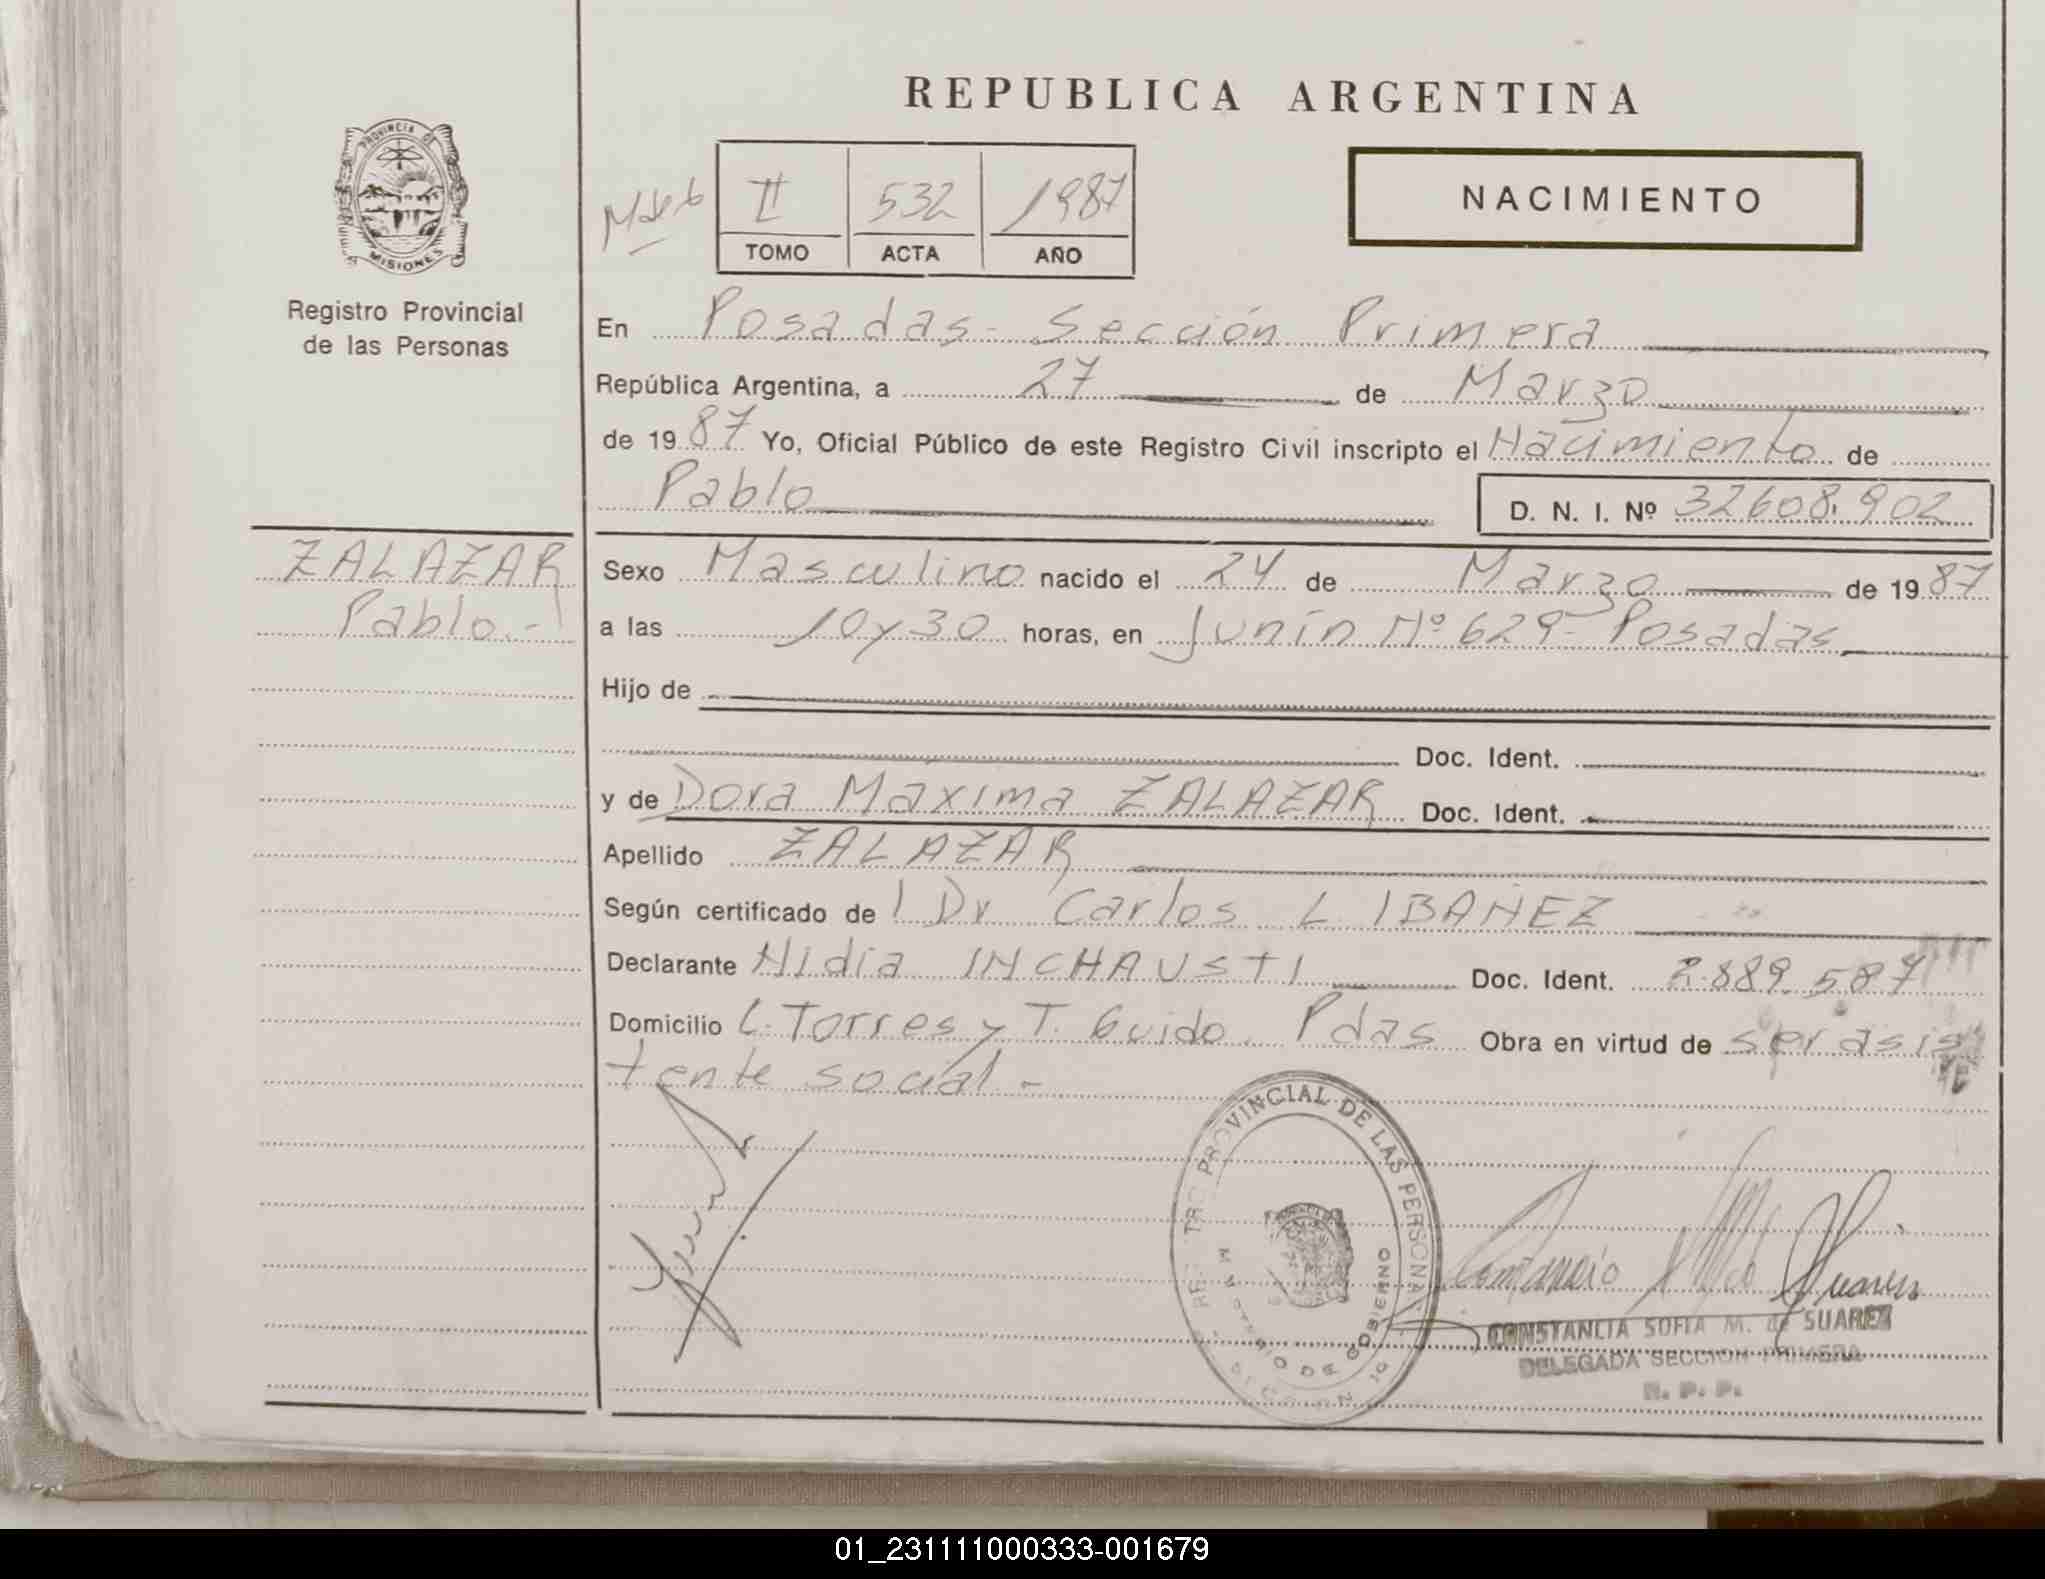 REPUBLICA ARGENTINA
PROVINCIA DE
MISIONES
Registro Provincial
de las Personas
II 532 1987
TOMO ACTA AÑO
NACIMIENTO
En Posadas - Sección Primera
República Argentina, a 27 de Marzo
de 1987 Yo, Oficial Público de este Registro Civil inscripto el Nacimiento de
Pablo D. N. I. Nº 32608.902
ZALAZAR
Pablo.-
Sexo Masculino nacido el 24 de Marzo de 1987
a las 10 y 30 horas, en Junín Nº 629- Posadas
Hijo de
Doc. Ident.
y de Dora Maxima ZALAZAR Doc. Ident.
Apellido ZALAZAR
Según certificado de l Dr Carlos L IBAÑEZ
Declarante Nidia INCHAUSTI Doc. Ident. 2.889.587
Domicilio L. Torres y T. Guido. Pdas Obra en virtud de ser asis
tente social -
PROVINCIAL DE LAS PERSONAS
DE GOBIERNO
CONSTANCIA SOFIA M. de SUAREZ
DELEGADA SECCION PRIMERA
R. P. P.
01_231111000333-001679